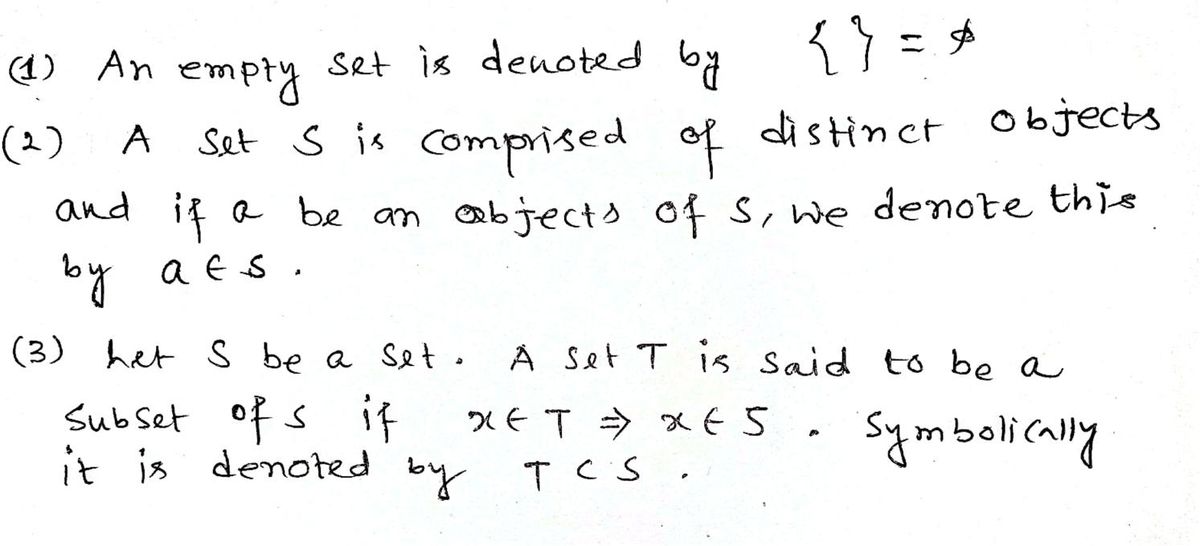 (1) An empty set is denoted by { } = ϕ
(2) A Set S is comprised of distinct objects
and if a be an objects of S, we denote this
by a ∈ S .
(3) Let S be a set . A set T is said to be a
Subset of S if x ∈ T ⇒ x ∈ S . Symbolically
it is denoted by T ⊂ S .